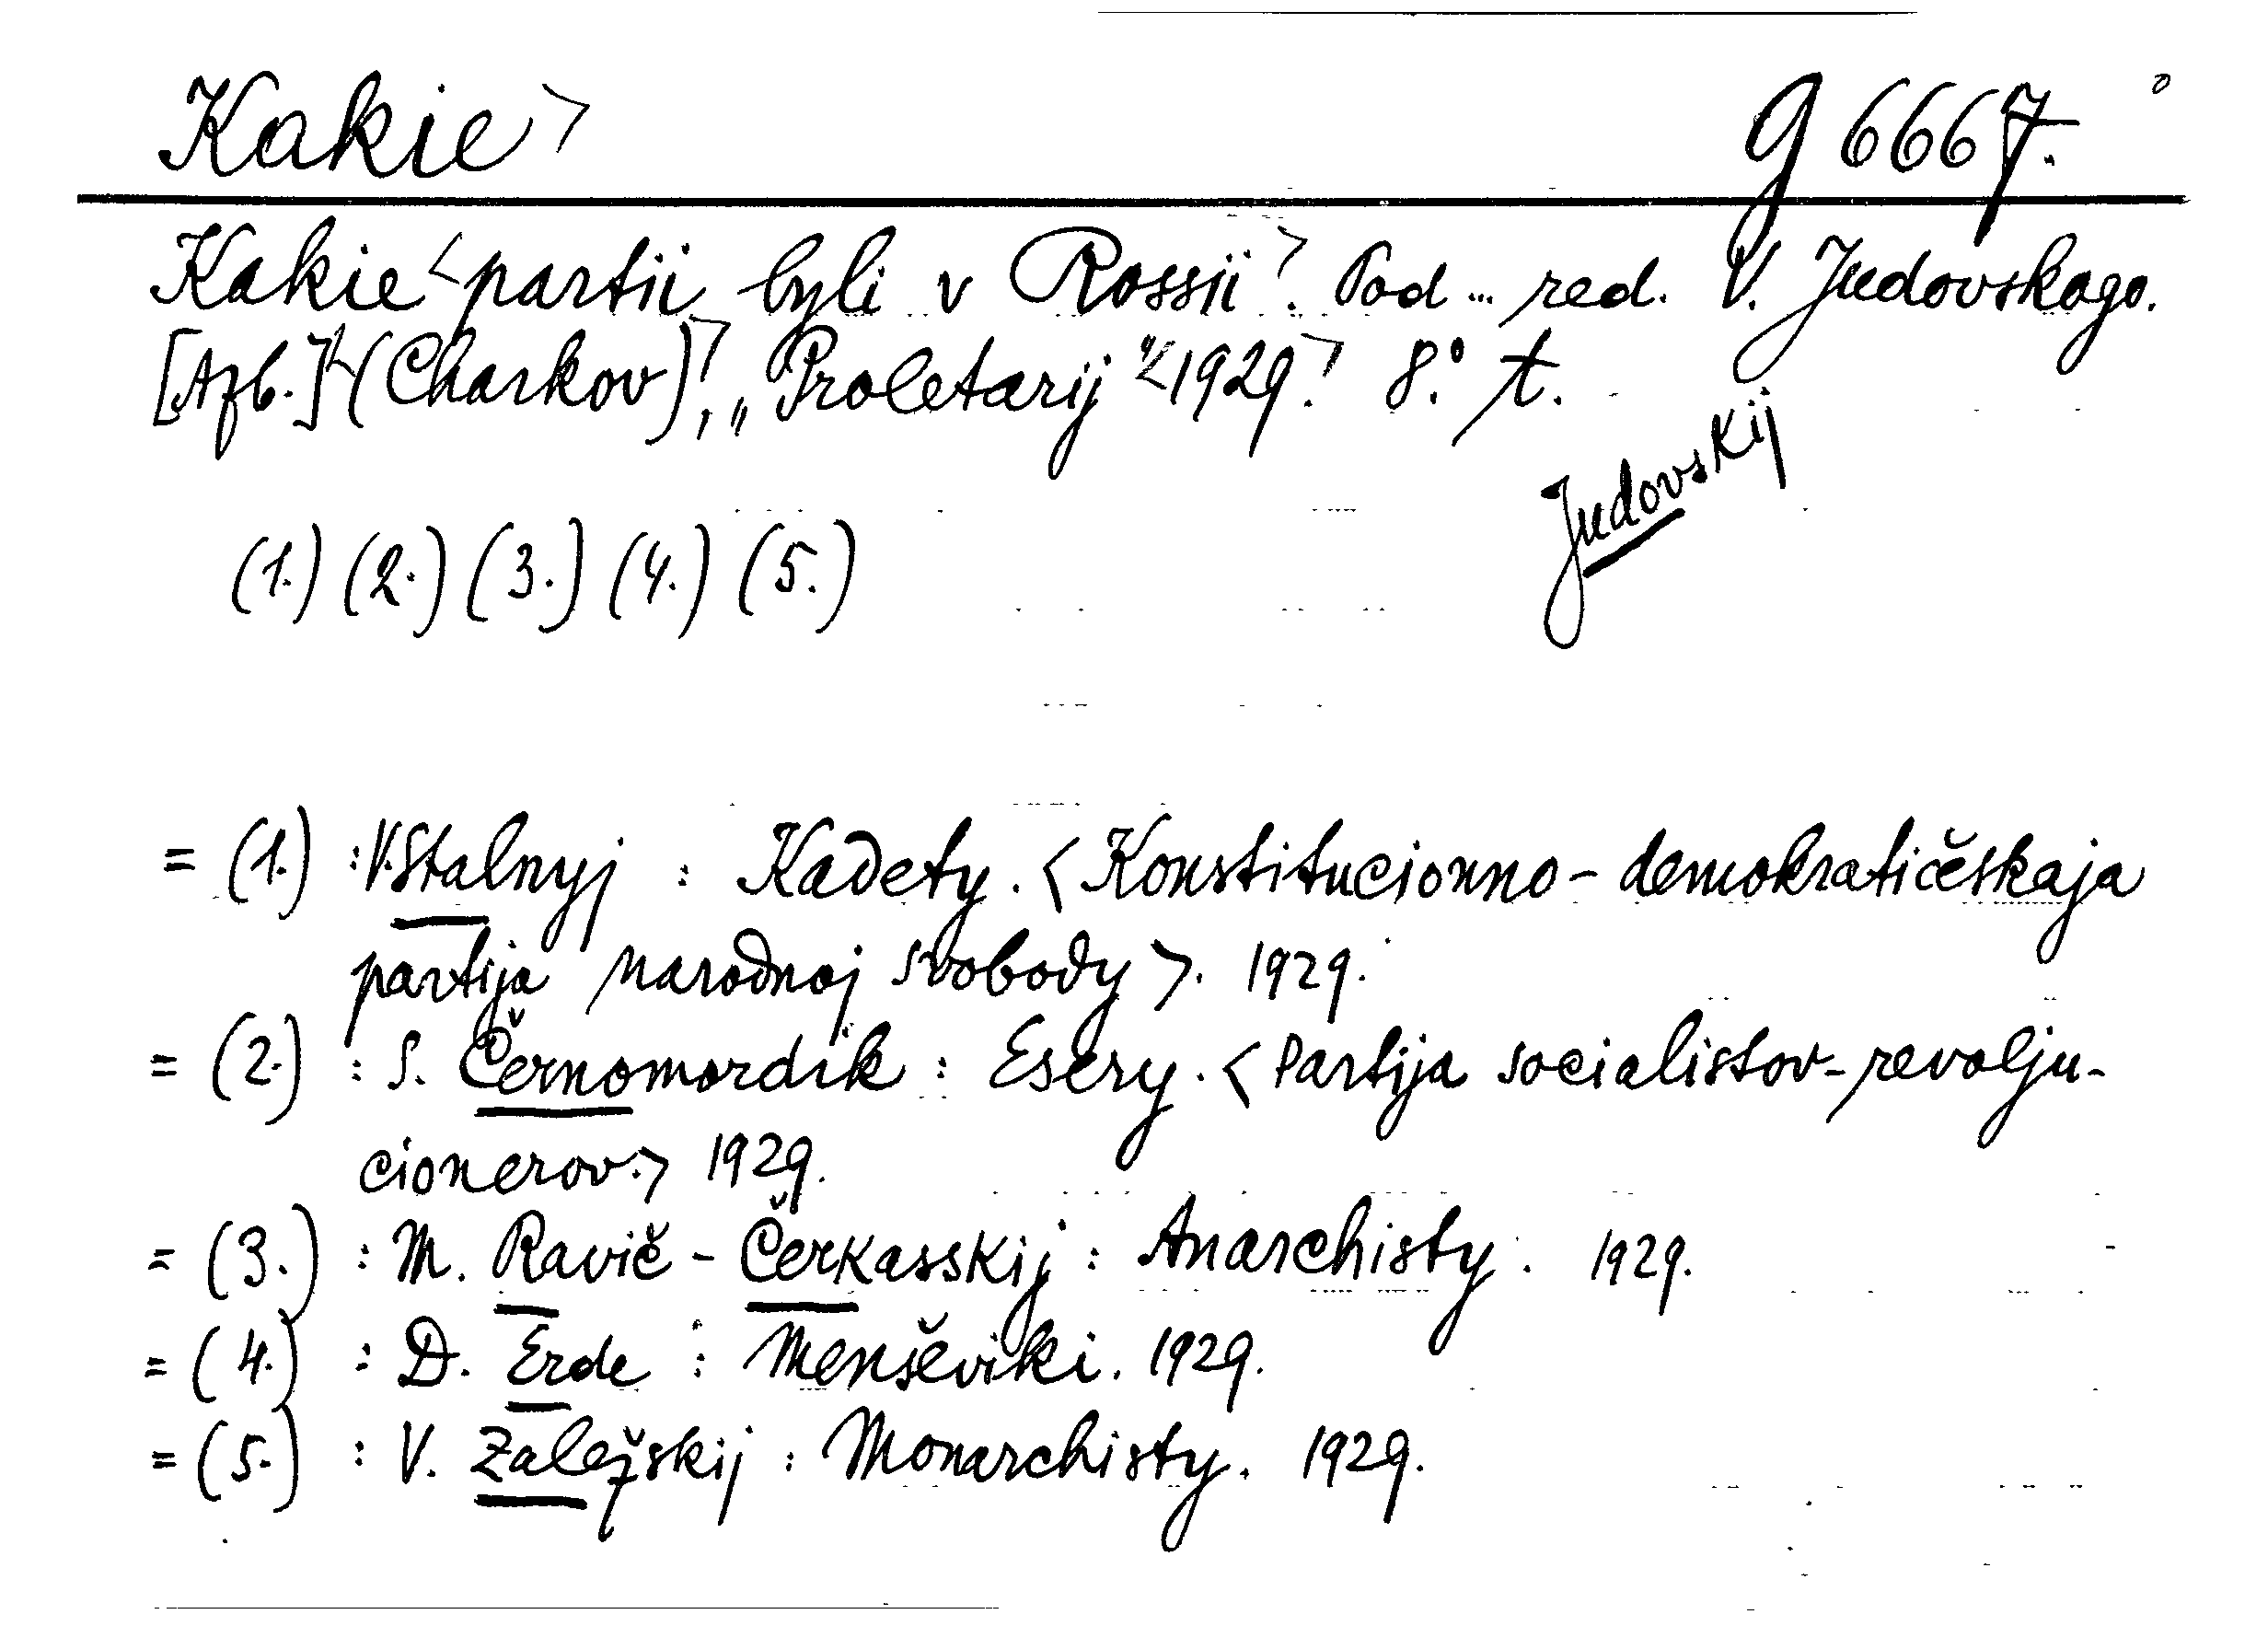 Kakie> g 6667.
Kakie <partii byli v Rossii>. Pod ... red. V. Judovskogo.
[Afb.] (Charkov), „Proletarij“ <1929.> 8.° t.
Judovskij
(1.) (2.) (3.) (4.) (5.)
= (1.) : V. Stalnyj : Kadety. <Konstitucionno-demokratičeskaja
partija narodnoj svobody>. 1929.
= (2.) : S. Černomordik : Esery. <Partija socialistov-revolju-
cionerov.> 1929.
= (3.) : M. Ravič-Čerkasskij : Anarchisty. 1929.
= (4.) : D. Erde : Menševiki. 1929.
= (5.) : V. Zaležskij : Monarchisty. 1929.